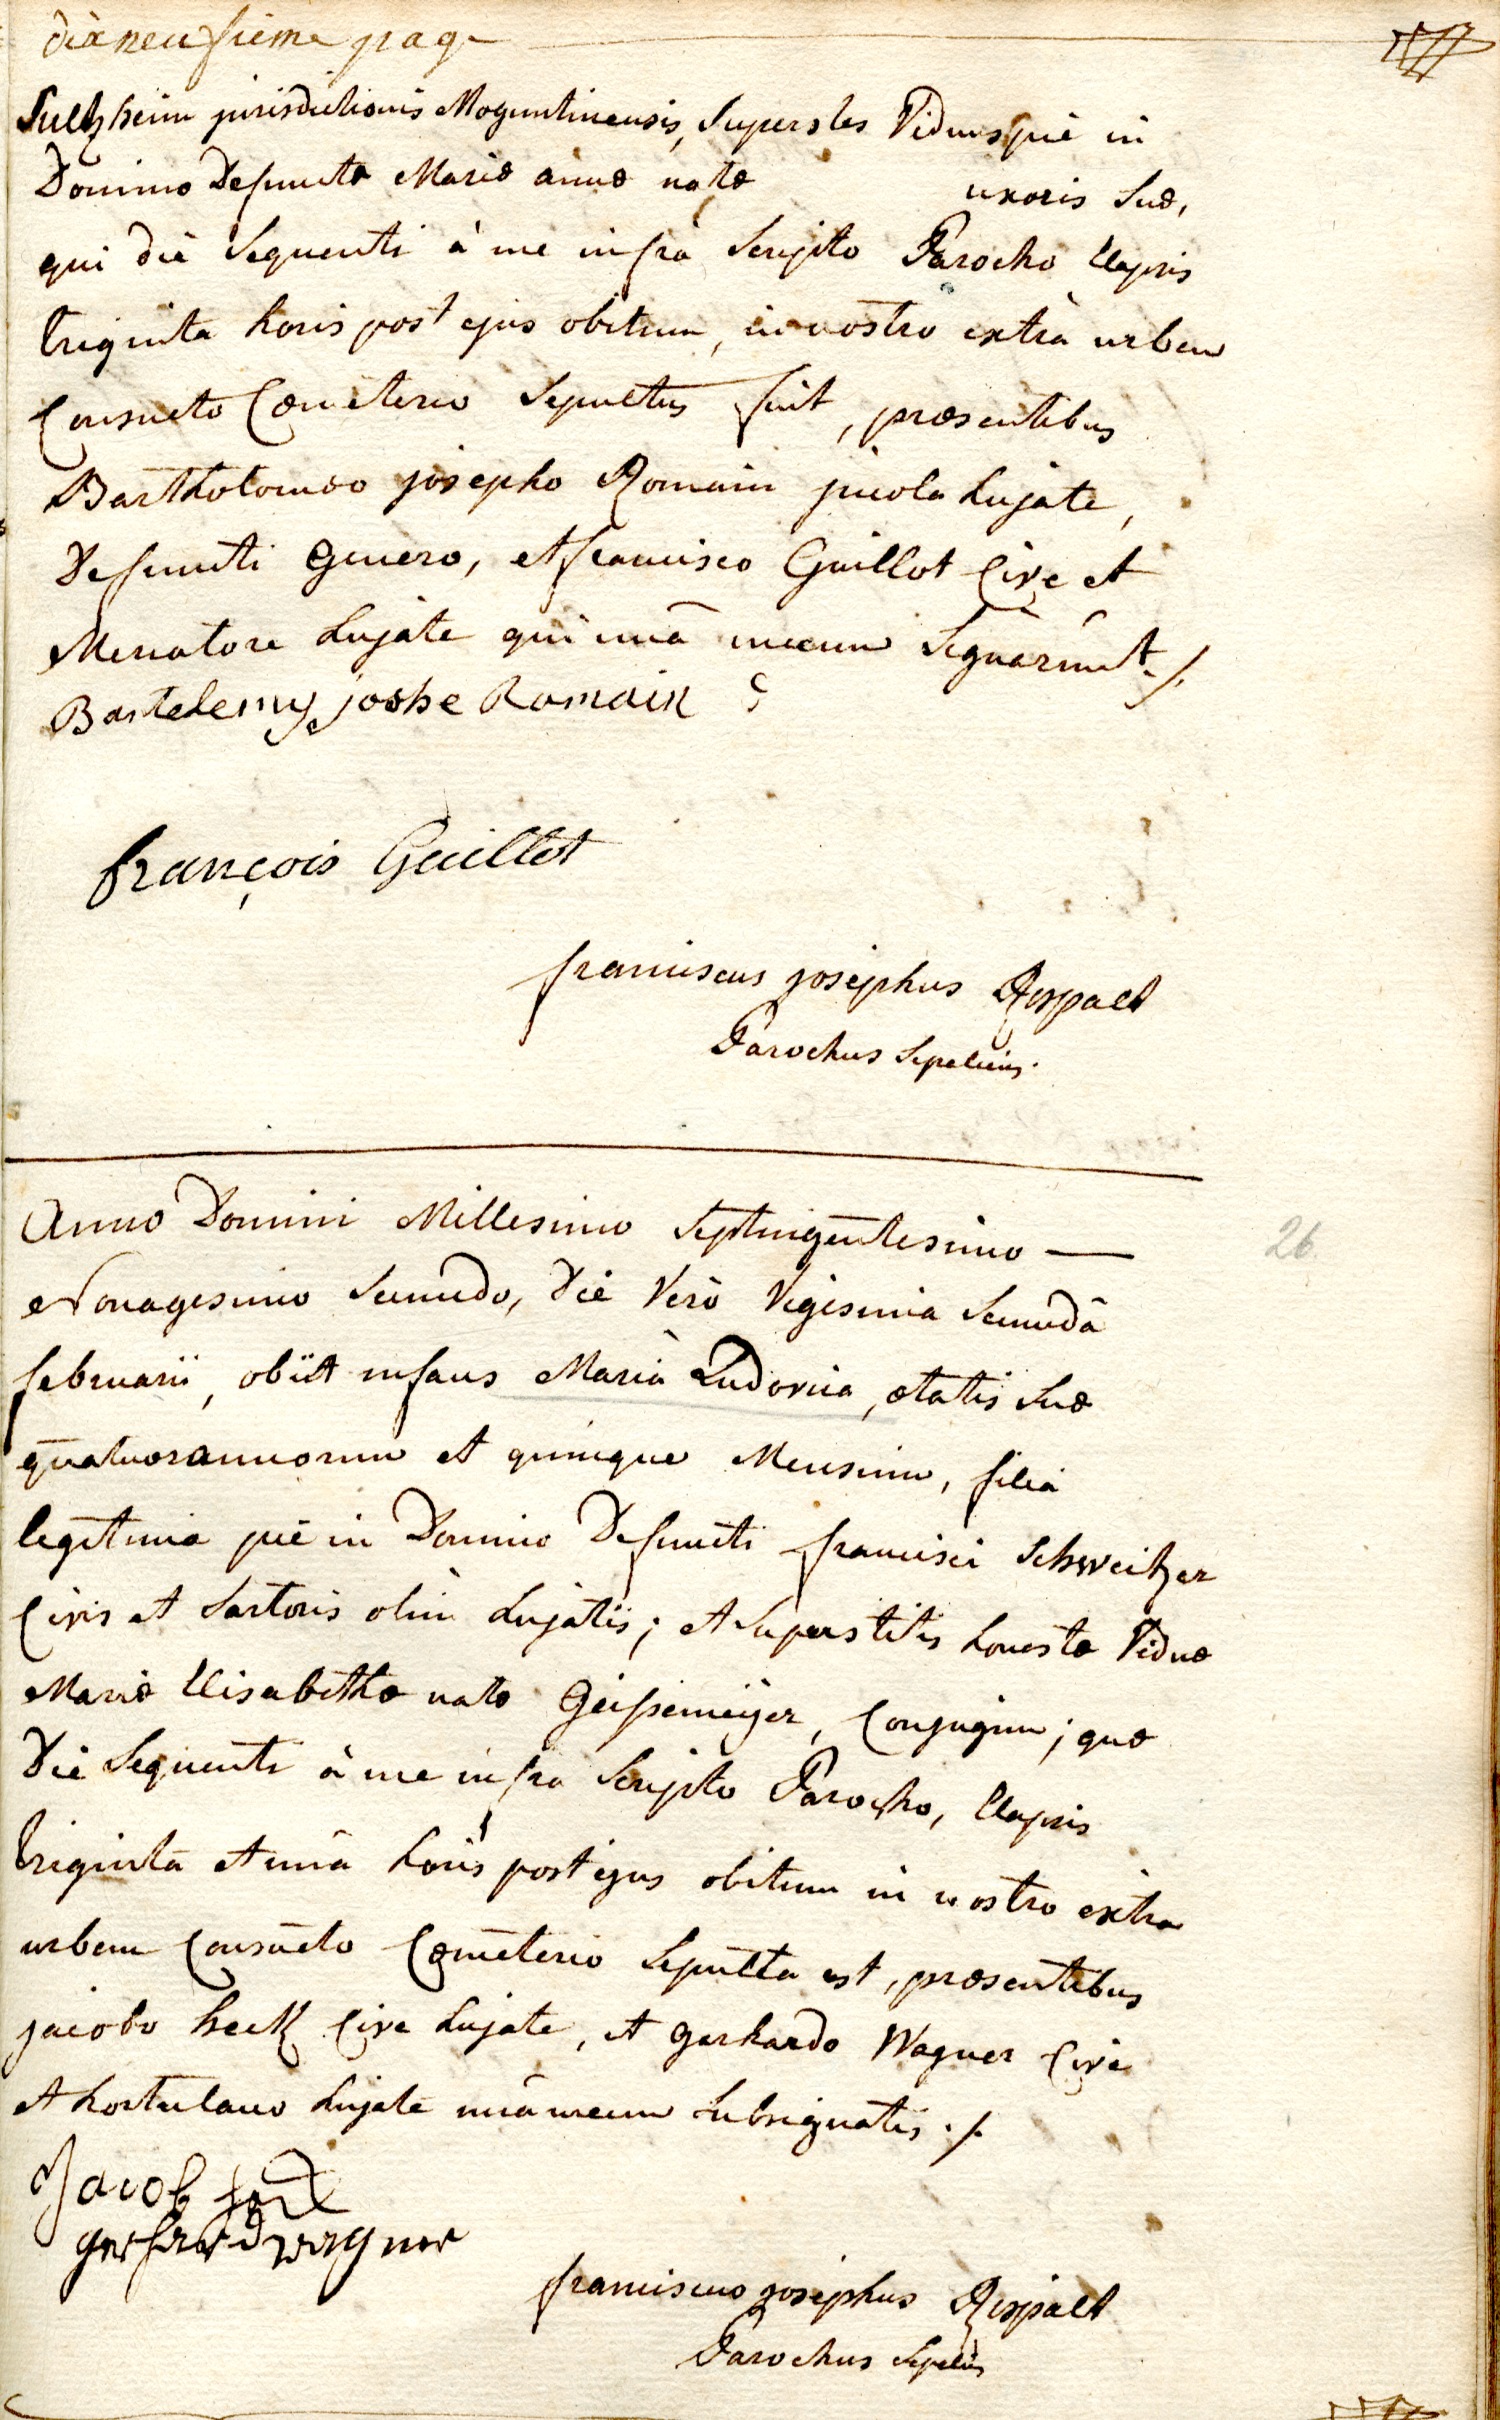 dixneufieme page
Sultzheim jurisdictionis Moguntinensis, Superstes Viduus piè in
Domino Defunctæ Mariæ annæ natæ uxoris Suæ,
qui diè Sequenti à me infrà Scripto Parocho Elapsis
triginta horis post ejus obitum, in nostro extrà urbem
Consueto Cœmeterio Sepultus fuit, præsentibus
Bartholomæo josepho Romain incola hujate,
Defuncti genero, et francisco Guillot Cive et
Mercatore hujate qui unà mecum Signàrunt ./.
Bartelemy joshe Romain
françois Guillot
franciscus josephus Rispalt
Parochus Sepeliens.
Anno Domini Millesimo Septingentesimo —
Nonagesimo Secundo, Diè Verò Vigesimà Secundâ
februarii, obiit infans Maria Ludovica, ætatis Suæ
quatuor annorum et quinque Mensium, filia
legitima piè in Domino Defuncti francisci Schweitzer
Civis et Sartoris olim hujatis; et Superstitis honestæ Viduæ
Mariæ Elisabethæ natæ Geissemeÿer, Conjugum; quæ
Diè Sequenti à me infra Scripto Parocho, Elapsis
triginta et unâ horis post ejus obitum in nostro extra
urbem Consueto Cœmeterio Sepulta est, præsentibus
jacobo heck Cive hujate, et gerhardo Wagner Cive
et hortulano hujate unà mecum Subsignatis ./.
26
Jacob heck
gerhard wagner
franciscus josephus Rispalt
Parochus Sepeliens